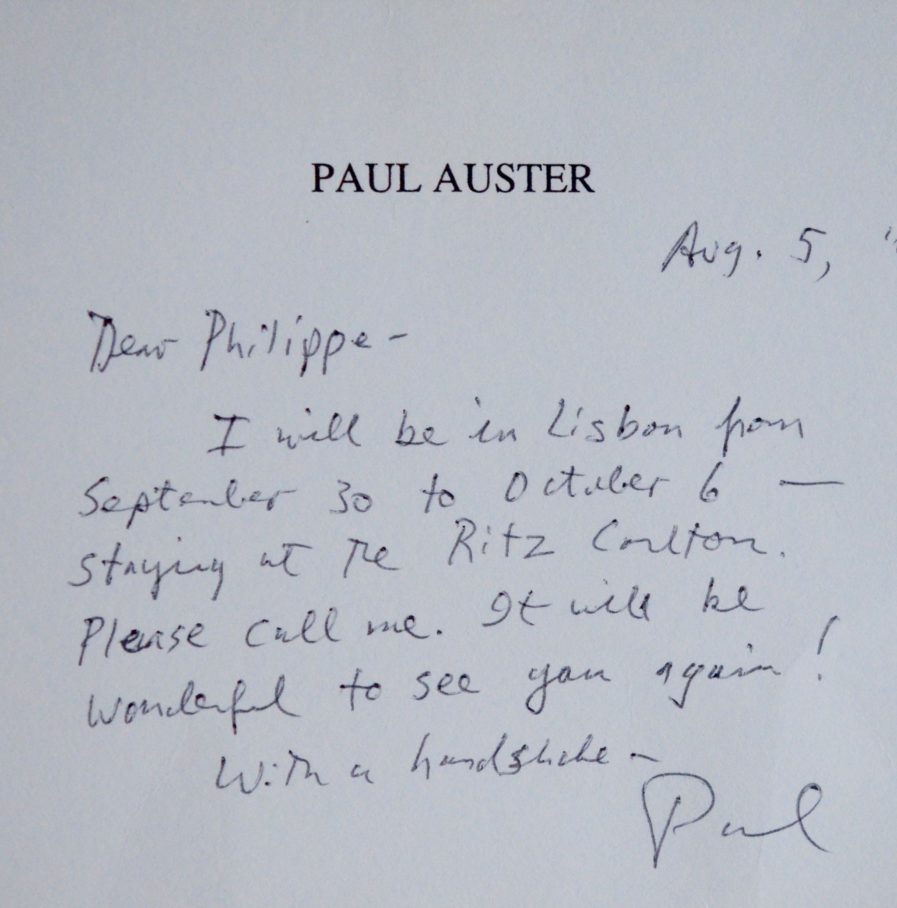 PAUL AUSTER
Aug. 5, '
Dear Philippe –
I will be in Lisbon from
September 30 to October 6 —
staying at the Ritz Carlton.
Please call me. It will be
wonderful to see you again!
With a handshake –
Paul